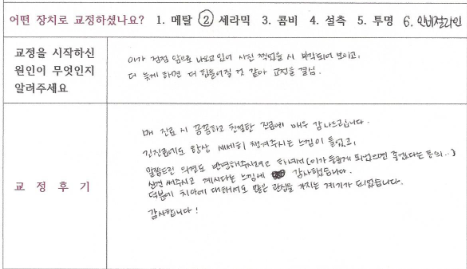 어떤 장치로 교정하셨나요? 1. 메탈 ② 세라믹 3. 콤비 4. 설측 5. 투명 6. 인비절라인
교정을 시작하신
원인이 무엇인지
알려주세요
이가 점점 앞으로 나오고 있어 사진 찍었을 시 부각되어 보이고,
더 늦게 하면 더 힘들어질 것 같아 교정을 결심.
교 정 후 기
매 진료 시 꼼꼼하고 친절한 진료에 매우 감사드립니다.
항상 세세히 챙겨주시는 느낌이 들었고,
의견도 반영해주시려고 하셔서 (이가 되었으면 좋겠다는 등의..)
신경 써주시고 계시다는 느낌에 감사했습니다.
덕분에 치아에 대하여도 많은 관심을 가지는 계기가 되었습니다.
감사합니다!